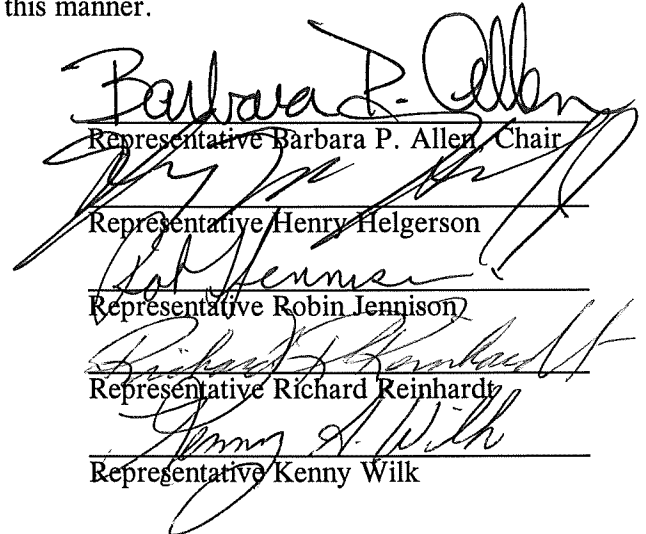 this manner.
Barbara P. Allen
Representative Barbara P. Allen, Chair
Representative Henry Helgerson
Representative Robin Jennison
Richard Reinhardt
Representative Richard Reinhardt
Kenny A. Wilk
Representative Kenny Wilk